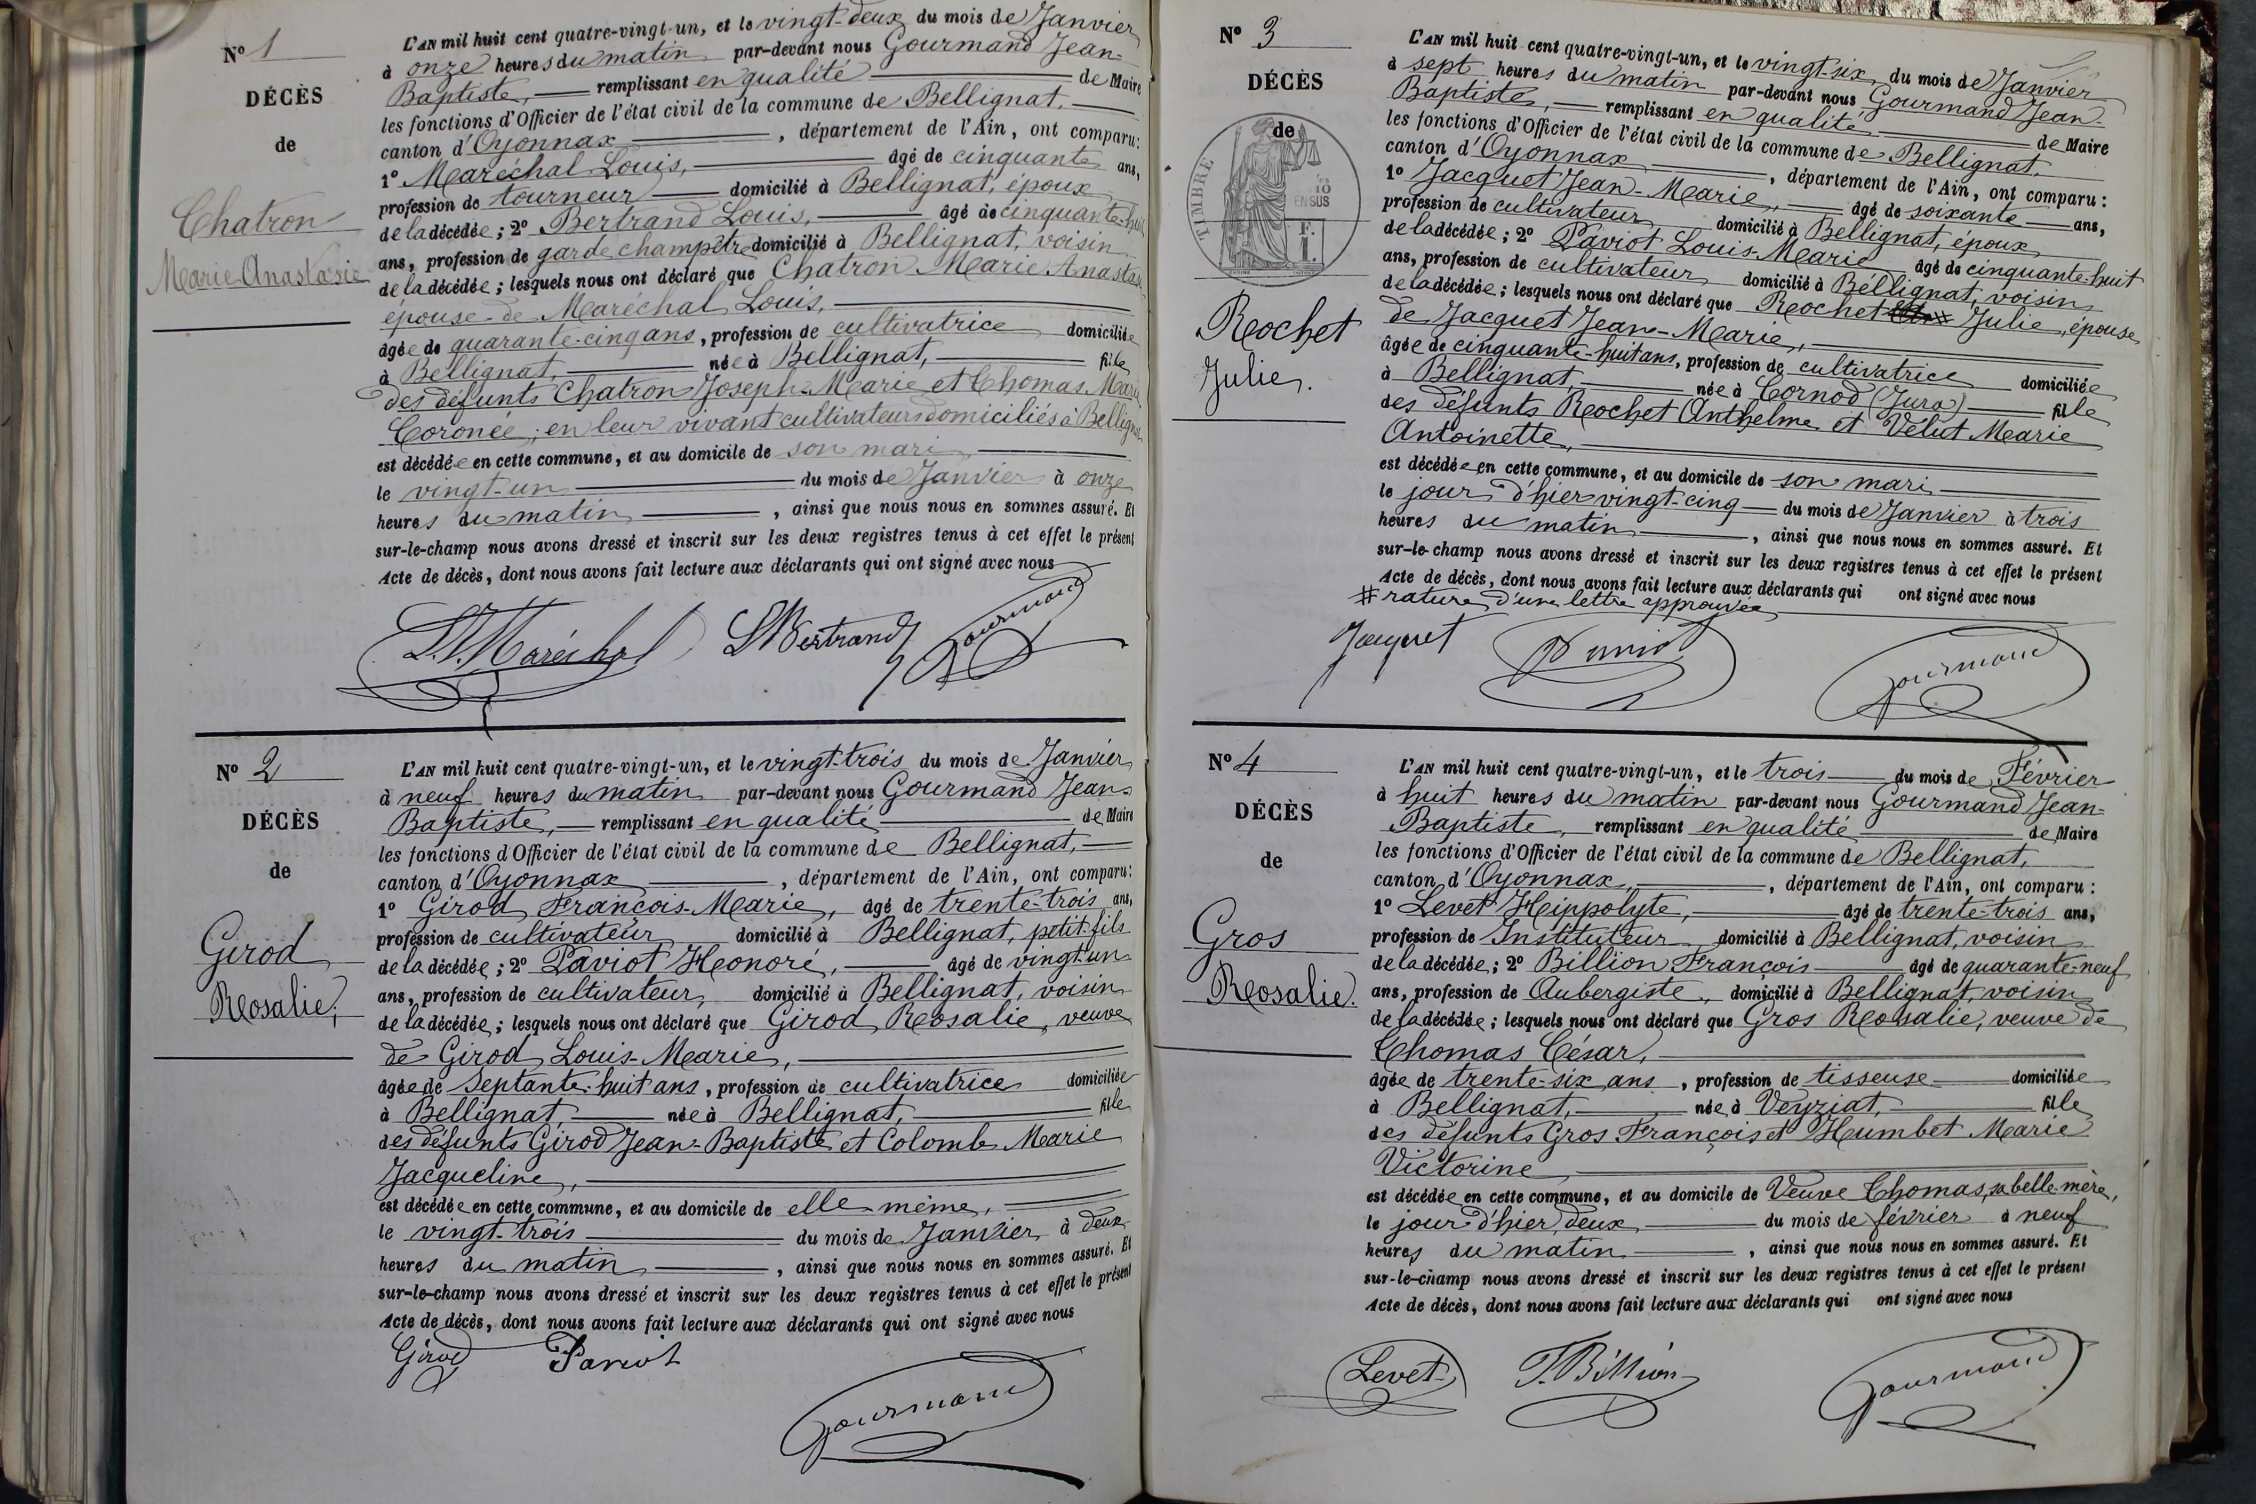 N° 1
DÉCÈS
de
Chatron
Marie Anastasie
L'AN mil huit cent quatre-vingt-un, et le vingt-deux du mois de Janvier
à onze heures du matin par-devant nous Gourmand Jean-
Baptiste, remplissant en qualité de Maire
les fonctions d'Officier de l'état civil de la commune de Bellignat,
canton d'Oyonnax, département de l'Ain, ont comparu:
1° Maréchal Louis, âgé de cinquante ans,
profession de tourneur domicilié à Bellignat, époux
de la décédée; 2° Bertrand Louis, âgé de cinquante-huit
ans, profession de garde champêtre domicilié à Bellignat, voisin
de la décédée; lesquels nous ont déclaré que Chatron Marie Anastasie
épouse de Maréchal Louis,
âgée de quarante-cinq ans, profession de cultivatrice domiciliée
à Bellignat, née à Bellignat, fille
des défunts Chatron Joseph-Marie et Thomas Marie
Coronée, en leur vivant cultivateurs domiciliés à Bellignat
est décédée en cette commune, et au domicile de son mari
le vingt-un du mois de Janvier à onze
heures du matin, ainsi que nous nous en sommes assuré. Et
sur-le-champ nous avons dressé et inscrit sur les deux registres tenus à cet effet le présent
Acte de décès, dont nous avons fait lecture aux déclarants qui ont signé avec nous
L. Maréchal L Bertrand Gourmand
N° 2
DÉCÈS
de
Girod
Rosalie,
L'AN mil huit cent quatre-vingt-un, et le vingt-trois du mois de Janvier
à neuf heures du matin par-devant nous Gourmand Jean-
Baptiste, remplissant en qualité de Maire
les fonctions d'Officier de l'état civil de la commune de Bellignat,
canton d'Oyonnax, département de l'Ain, ont comparu:
1° Girod François-Marie, âgé de trente-trois ans,
profession de cultivateur domicilié à Bellignat, petit-fils
de la décédée; 2° Paviot Honoré, âgé de vingt-un
ans, profession de cultivateur, domicilié à Bellignat, voisin
de la décédée; lesquels nous ont déclaré que Girod Rosalie, veuve
de Girod Louis-Marie,
âgée de septante-huit ans, profession de cultivatrice domiciliée
à Bellignat, née à Bellignat, fille
des défunts Girod Jean-Baptiste et Colomb Marie
Jacqueline,
est décédée en cette commune, et au domicile de elle même,
le vingt-trois du mois de Janvier à deux
heures du matin, ainsi que nous nous en sommes assuré. Et
sur-le-champ nous avons dressé et inscrit sur les deux registres tenus à cet effet le présent
Acte de décès, dont nous avons fait lecture aux déclarants qui ont signé avec nous
Girod Paviot
Gourmand
N° 3
DÉCÈS
de
TIMBRE
10
EN SUS
F.
Rochet
Julie.
L'AN mil huit cent quatre-vingt-un, et le vingt-six du mois de Janvier
à sept heures du matin par-devant nous Gourmand Jean
Baptiste, remplissant en qualité de Maire
les fonctions d'Officier de l'état civil de la commune de Bellignat,
canton d'Oyonnax, département de l'Ain, ont comparu:
1° Jacquet Jean-Marie, âgé de soixante ans,
profession de cultivateur domicilié à Bellignat, époux
de la décédée; 2° Paviot Louis-Marie âgé de cinquante-huit
ans, profession de cultivateur domicilié à Bellignat, voisin
de la décédée; lesquels nous ont déclaré que Rochet # Julie, épouse
de Jacquet Jean-Marie,
âgée de cinquante-huit ans, profession de cultivatrice domiciliée
à Bellignat, née à Cornod (Jura) fille
des défunts Rochet Anthelme et Velut Marie
Antoinette,
est décédée en cette commune, et au domicile de son mari
le jour d'hier vingt-cinq du mois de Janvier à trois
heures du matin, ainsi que nous nous en sommes assuré. Et
sur-le-champ nous avons dressé et inscrit sur les deux registres tenus à cet effet le présent
Acte de décès, dont nous avons fait lecture aux déclarants qui ont signé avec nous
# rature d'une lettre approuvée
Jacquet Paviot Gourmand
N° 4
DÉCÈS
de
Gros
Rosalie.
L'AN mil huit cent quatre-vingt-un, et le trois du mois de Février
à huit heures du matin par-devant nous Gourmand Jean-
Baptiste, remplissant en qualité de Maire
les fonctions d'Officier de l'état civil de la commune de Bellignat,
canton d'Oyonnax, département de l'Ain, ont comparu:
1° Levet Hippolyte, âgé de trente-trois ans,
profession de Instituteur domicilié à Bellignat, voisin
de la décédée; 2° Billion François âgé de quarante-neuf
ans, profession de Aubergiste, domicilié à Bellignat, voisin
de la décédée; lesquels nous ont déclaré que Gros Rosalie, veuve de
Thomas César,
âgée de trente-six ans, profession de tisseuse domiciliée
à Bellignat, née à Veyziat, fille
des défunts Gros François et Humbet Marie
Victorine,
est décédée en cette commune, et au domicile de Veuve Thomas, sa belle-mère,
le jour d'hier, deux du mois de février à neuf
heures du matin, ainsi que nous nous en sommes assuré. Et
sur-le-champ nous avons dressé et inscrit sur les deux registres tenus à cet effet le présent
Acte de décès, dont nous avons fait lecture aux déclarants qui ont signé avec nous
Levet F. Billion Gourmand